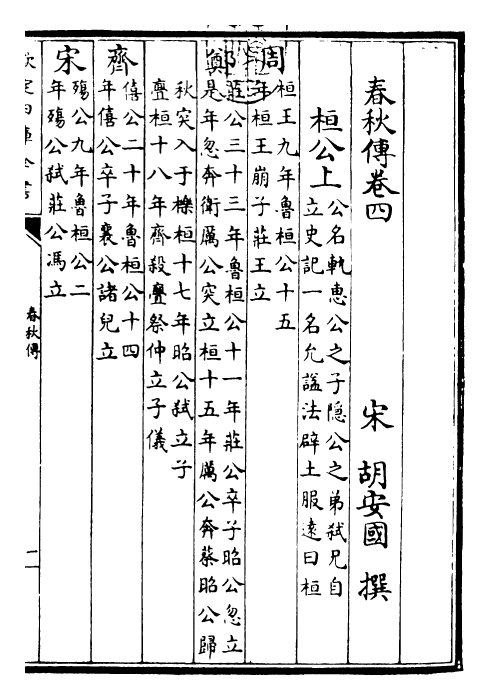 春秋傳卷四　宋　胡安國　撰
桓公上
公名軌惠公之子隐公之弟弑兄自
立史記一名允諡法辟土服逺曰桓
周
桓王九年魯桓公十五
年桓王崩子莊王立
鄭
莊公三十三年魯桓公十一年莊公卒子昭公忽立
是年忽奔衛厲公突立桓十五年厲公奔蔡昭公歸
秋突入于櫟桓十七年昭公弑立子
亹桓十八年齊殺亹祭仲立子儀
齊
僖公二十年魯桓公十四
年僖公卒子襄公諸兒立
宋
殤公九年魯桓公二
年殤公弑莊公馮立
欽定四庫全書
春秋傳
二